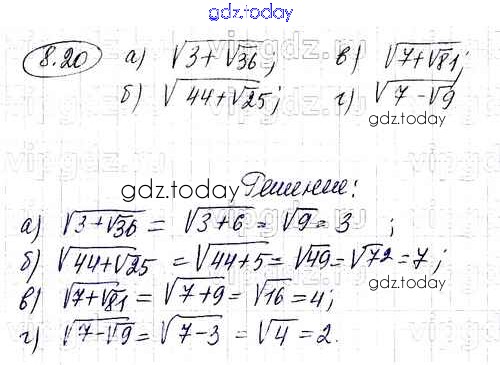 gdz.today
8.20 а) √(3+√36); в) √(7+√81);
б) √(44+√25; г) √(7-√9)
gdz.today
gdz.today
Решение:
а) √(3+√36) = √(3+6) = √9 = 3 ;
б) √(44+√25) = √(44+5) = √49 = √7² = 7;
в) √(7+√81) = √(7+9) = √16 = 4;
г) √(7-√9) = √(7-3) = √4 = 2.